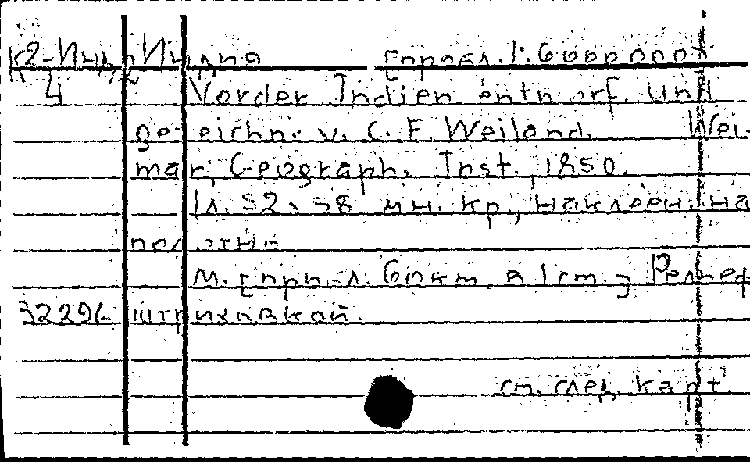 К2-Инд Индия [прибл. 1:6000000]
4 Vorder Indien entworf. und
gezeichn. v. C. F. Weiland. Wei-
mar, Geograph. Inst., 1850.
1л. 52×58 мн. кр., наклеен. на
полотно
М. [прибл. 60км. в 1см.] Рельеф
штриховкой.
см. след. карт